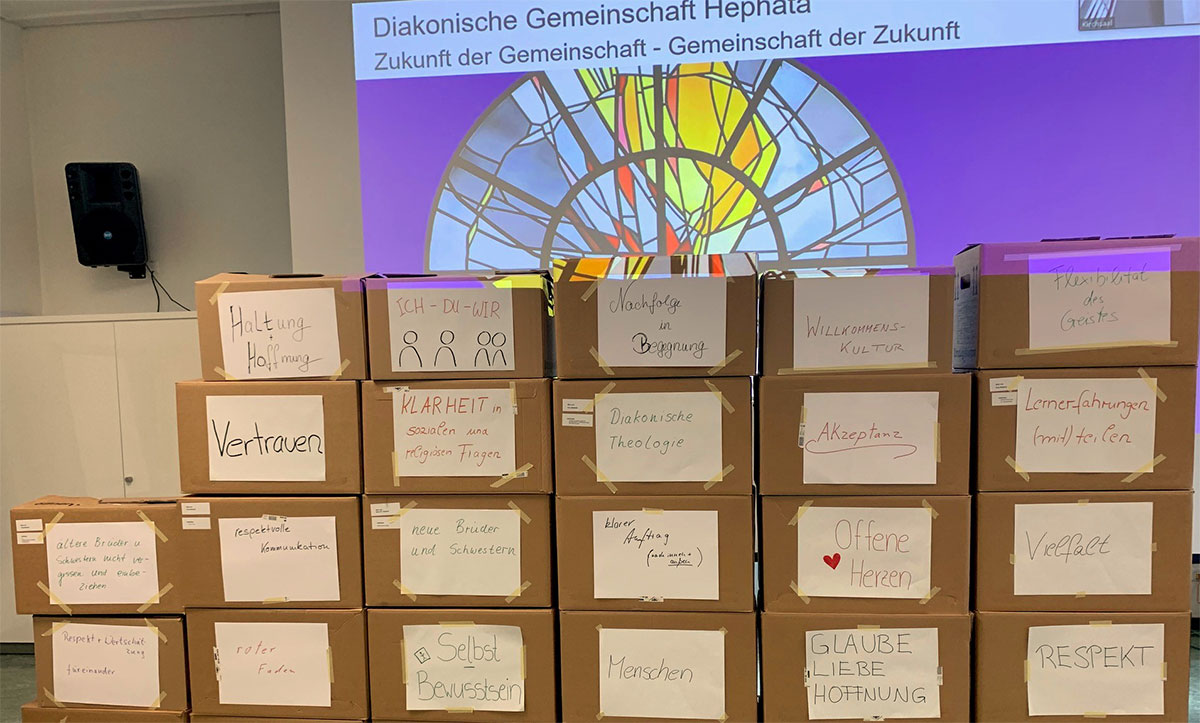 Diakonische Gemeinschaft Hephata
Zukunft der Gemeinschaft - Gemeinschaft der Zukunft
Kirchsaal
Haltung
+
Hoffnung
ICH - DU - WIR
Nachfolge
in
Begegnung
WILLKOMMENS-
KULTUR
Flexibilität
des
Geistes
Vertrauen
KLARHEIT in
sozialen und
religiösen Fragen
Diakonische
Theologie
AKzeptanz
Lernerfahrungen
(mit) teilen
ältere Brüder u
Schwestern nicht ver-
gessen und einbe-
ziehen
respektvolle
Kommunikation
neue Brüder
und Schwestern
klarer
Auftrag
(nach innen +
außen)
Offene
Herzen
Vielfalt
Respekt + Wertschät
zung
füreinander
roter
Faden
Selbst
-
Bewusstsein
Menschen
GLAUBE
LIEBE
HOFFNUNG
RESPEKT